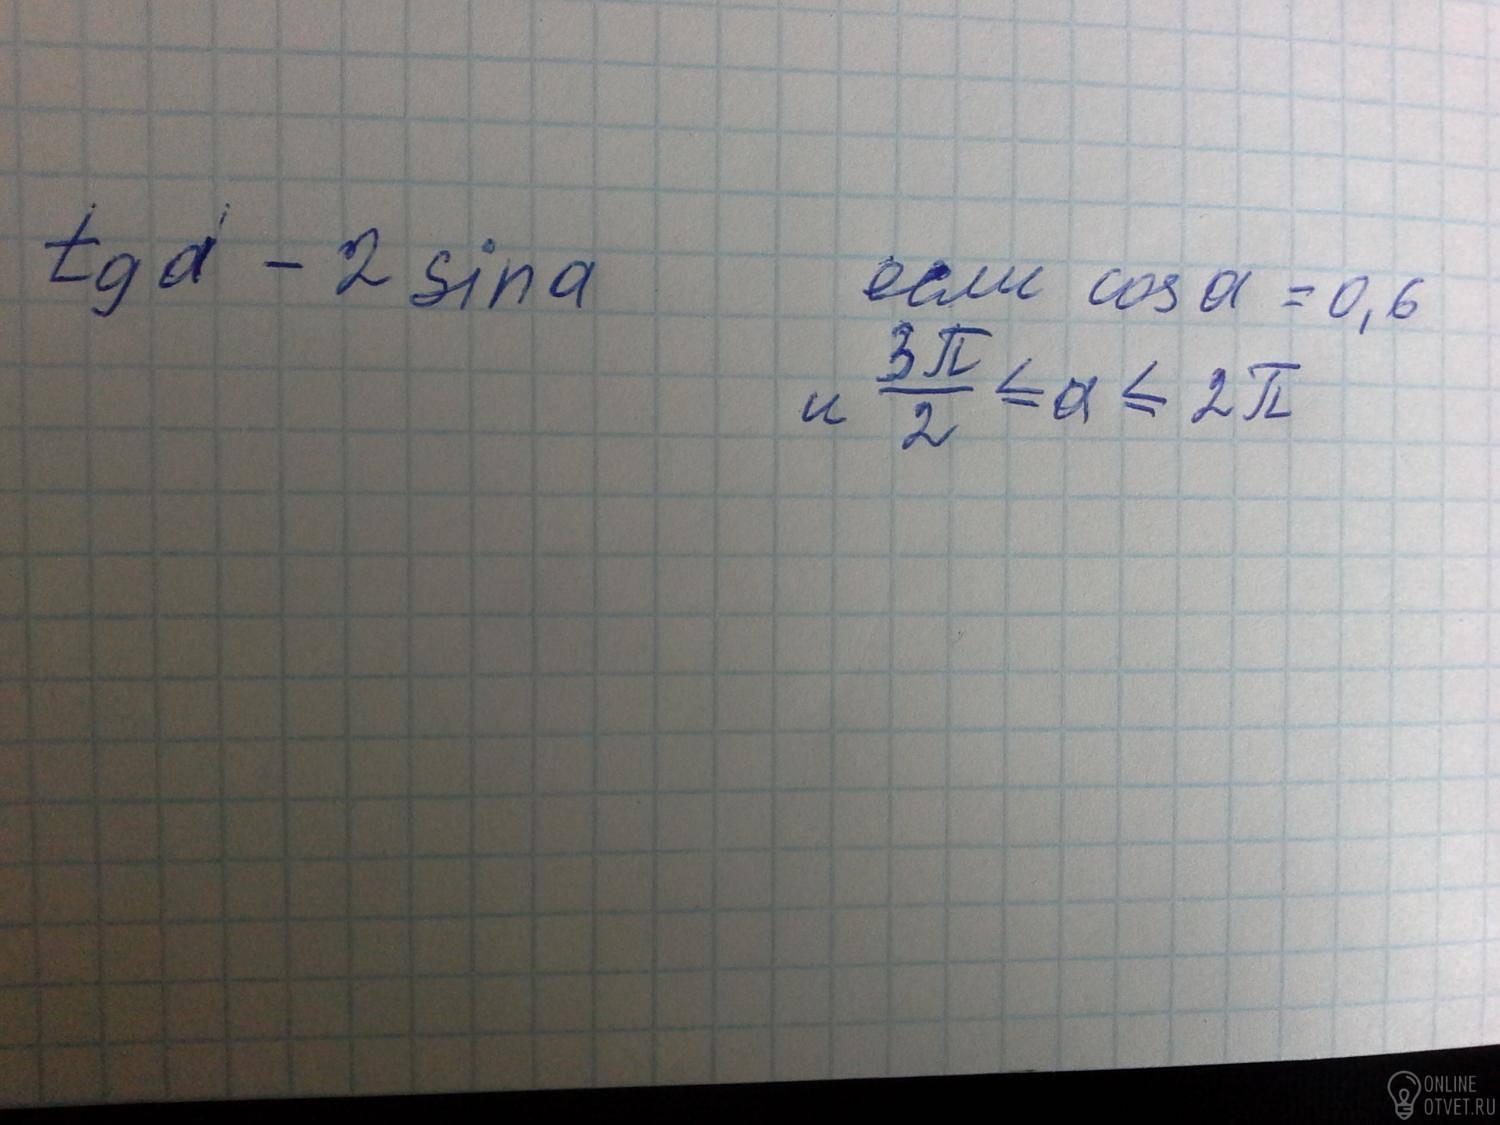 tg α - 2 sin α если cos α = 0,6
и 3π/2 ≤ α ≤ 2π
ONLINE
OTVET.RU